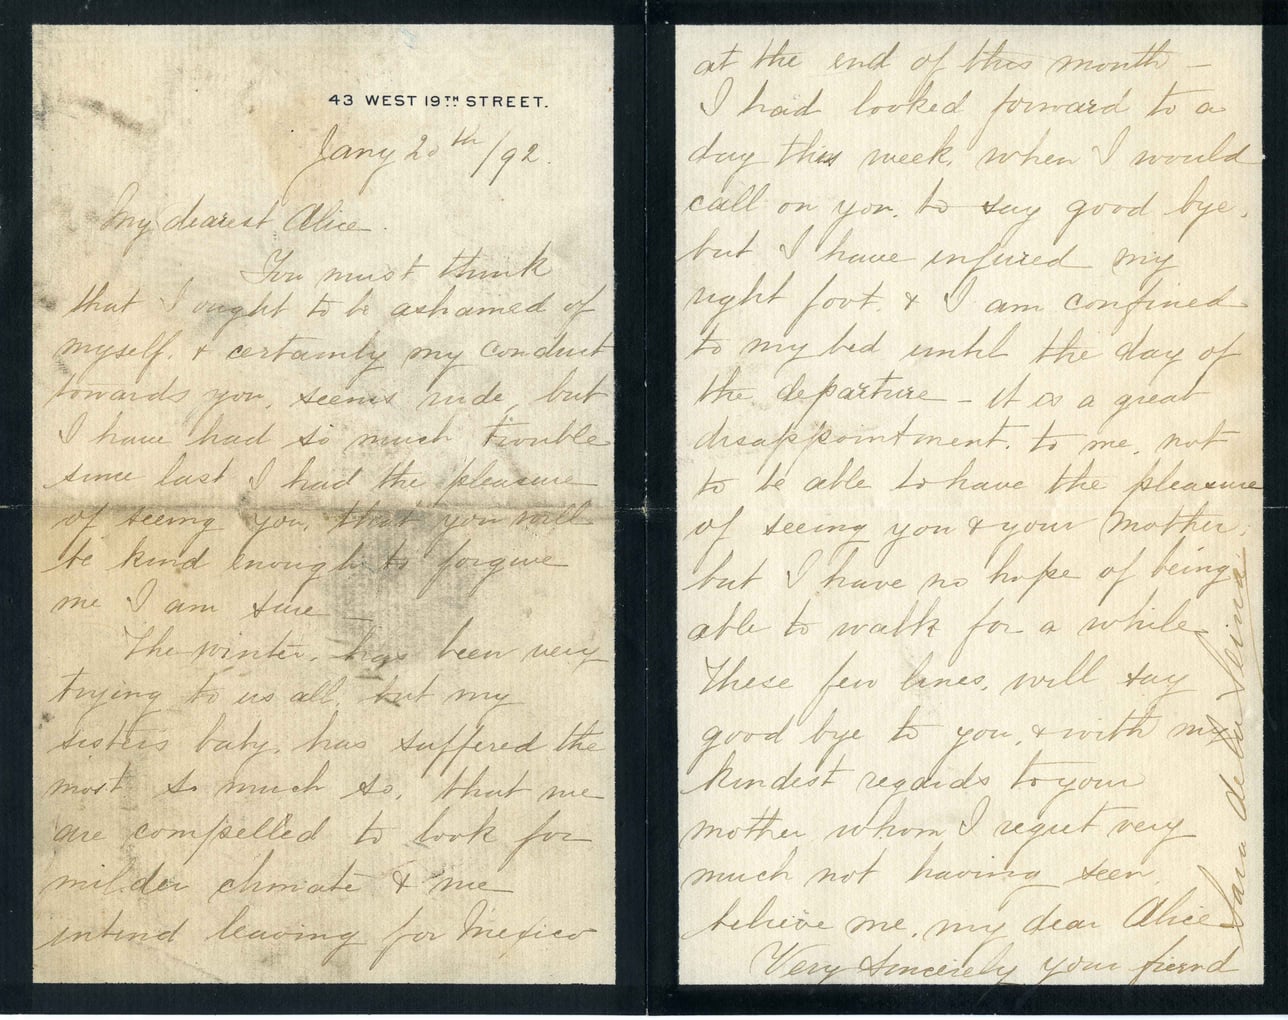 43 WEST 19TH STREET.
Jany 20th/92.
My dearest Alice.
You must think
that I ought to be ashamed of
myself. & certainly my conduct
towards you, seems rude, but
I have had so much trouble
since last I had the pleasure
of seeing you, that you will
be kind enough to forgive
me I am sure —
The winter, has been very
trying to us all, but my
sisters baby, has suffered the
most so much so, that we
are compelled to look for
milder climate & we
intend leaving for Mexico
at the end of this month —
I had looked forward to a
day this week, when I would
call on you, to say good bye,
but I have injured my
right foot. & I am confined
to my bed until the day of
the departure — it is a great
disappointment. to me, not
to be able to have the pleasure
of seeing you & your mother,
but I have no hope of being
able to walk for a while
These few lines, will say
good bye to you, & with my
kindest regards to your
mother whom I regret very
much not having seen
believe me, my dear Alice
Very sincerely your friend